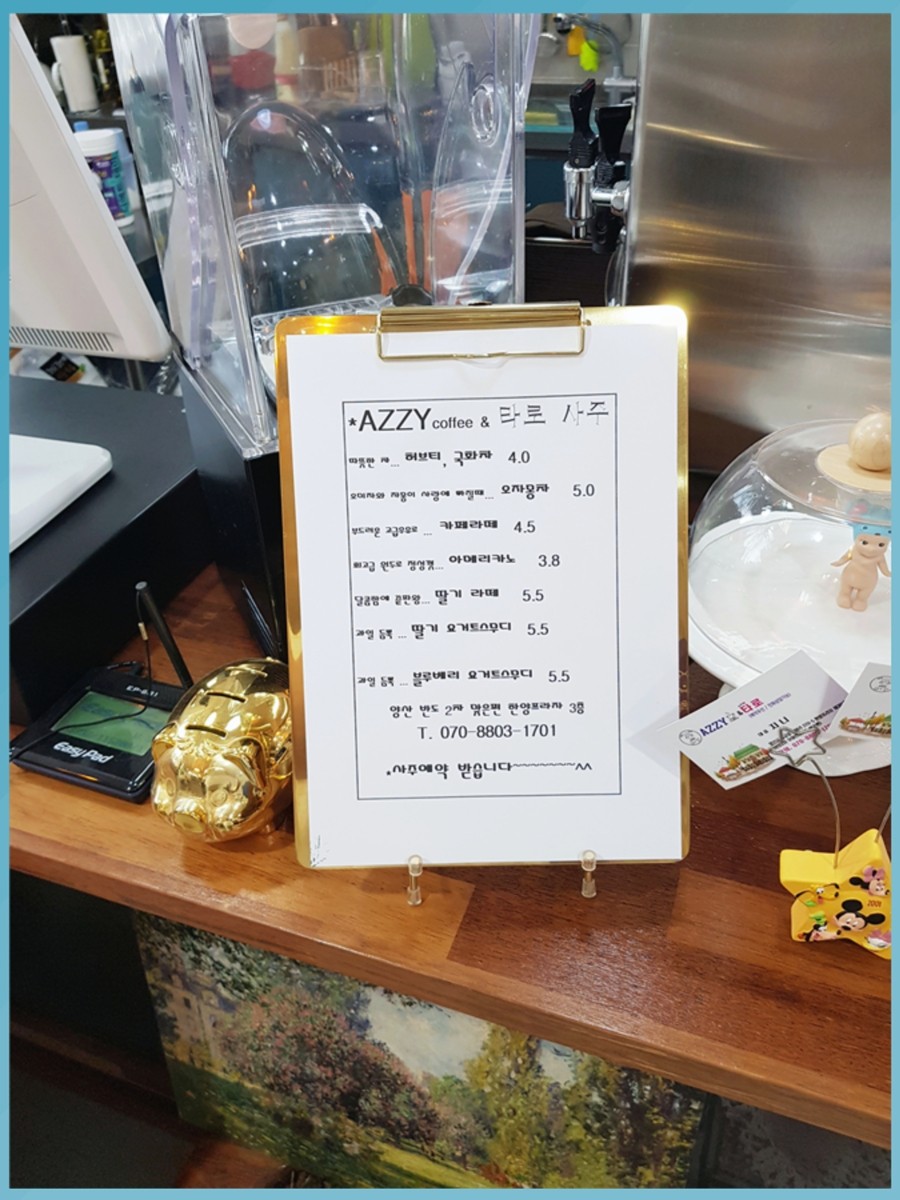 *AZZY coffee & 타로 사주
따뜻한 차... 허브티, 국화차 4.0
오미자와 자몽이 사랑에 빠질때... 오자몽차 5.0
부드러운 고급우유로 ... 카페라떼 4.5
최고급 원두로 정성껏... 아메리카노 3.8
달콤함에 끝판왕... 딸기 라떼 5.5
과일 듬뿍 ... 딸기 요거트스무디 5.5
과일 듬뿍 ... 블루베리 요거트스무디 5.5
양산 반도 2차 맞은편 한양프라자 3층
T. 070-8803-1701
*사주예약 받습니다~~~~~~~~^^
EP-6.11
EasyPad
AZZY &타로